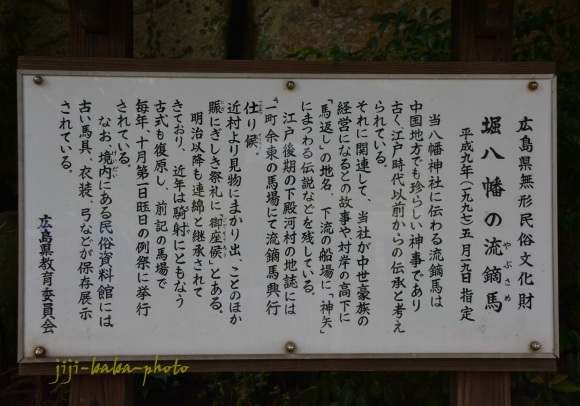 広島県無形民俗文化財
堀八幡の流鏑馬
やぶさめ
平成九年(一九九七)五月一九日指定
当八幡神社に伝わる流鏑馬は
中国地方でも珍らしい神事であり
古く、江戸時代以前からの伝承と考え
られている。
それに関連して、当社が中世豪族の
経営になるとの故事や対岸の高下に
「馬返し」の地名、下流の船場に「神矢」
にまつわる伝説などを残している。
江戸後期の下殿河村の地誌には
"一町余東の馬場にて流鏑馬興行
仕り候。
近村より見物にまかり出、ことのほか
賑にぎしき祭礼に御座候〟とある。
明治以降も連綿と継承されて
きており、近年は騎射にともなう
古式も復原し、前記の馬場で
毎年、十月第一日曜日の例祭に挙行
されている。
なお、境内にある民俗資料館には
古い馬具、衣装、弓などが保存展示
されている。
広島県教育委員会
jiji-baba-photo